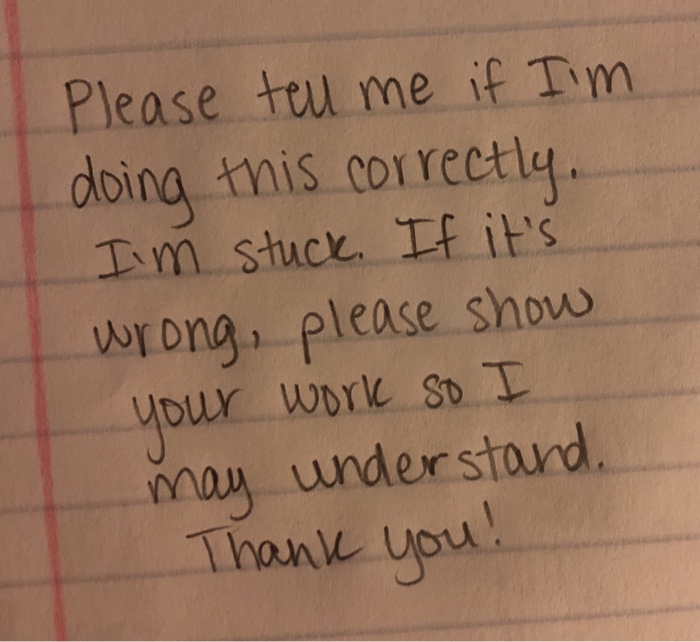 Please tell me if I'm
doing this correctly.
I'm stuck. If it's
wrong, please show
your work so I
may understand.
Thank you!